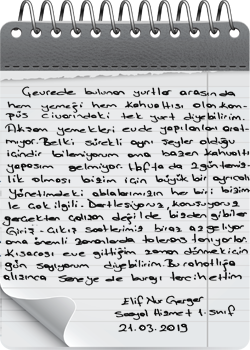 Çevrede bulunan yurtlar arasında
hem yemeği hem kahvaltısı olan kam
püs civarındaki tek yurt diyebilirim.
Akşam yemekleri evde yapılanları arat
mıyor. Belki sürekli aynı şeyler olduğu
içindir bilemiyorum ama bazen kahvaltı
yapasım gelmiyor. Haftada 2 gün temiz-
lik olması bizim için büyük bir ayrıcalık
Yönetimdeki ablalarımızın her biri bizim
le çok ilgili. Dertleşiyoruz, konuşuyoruz
gerçekten çalışan değil de bizden gibiler
Giriş-Çıkış saatlerimiz biraz az geliyor
ama önemli zamanlarda tolerans tanıyorlar.
Kısacası eve gittiğim zaman dönmek için
gün sayıyorum diyebilirim. Bu rahatlığa
alışınca seneye de burayı tercih ettim
Elif Nur Gerger
Sosyal Hizmet 1. Sınıf
21.03.2019